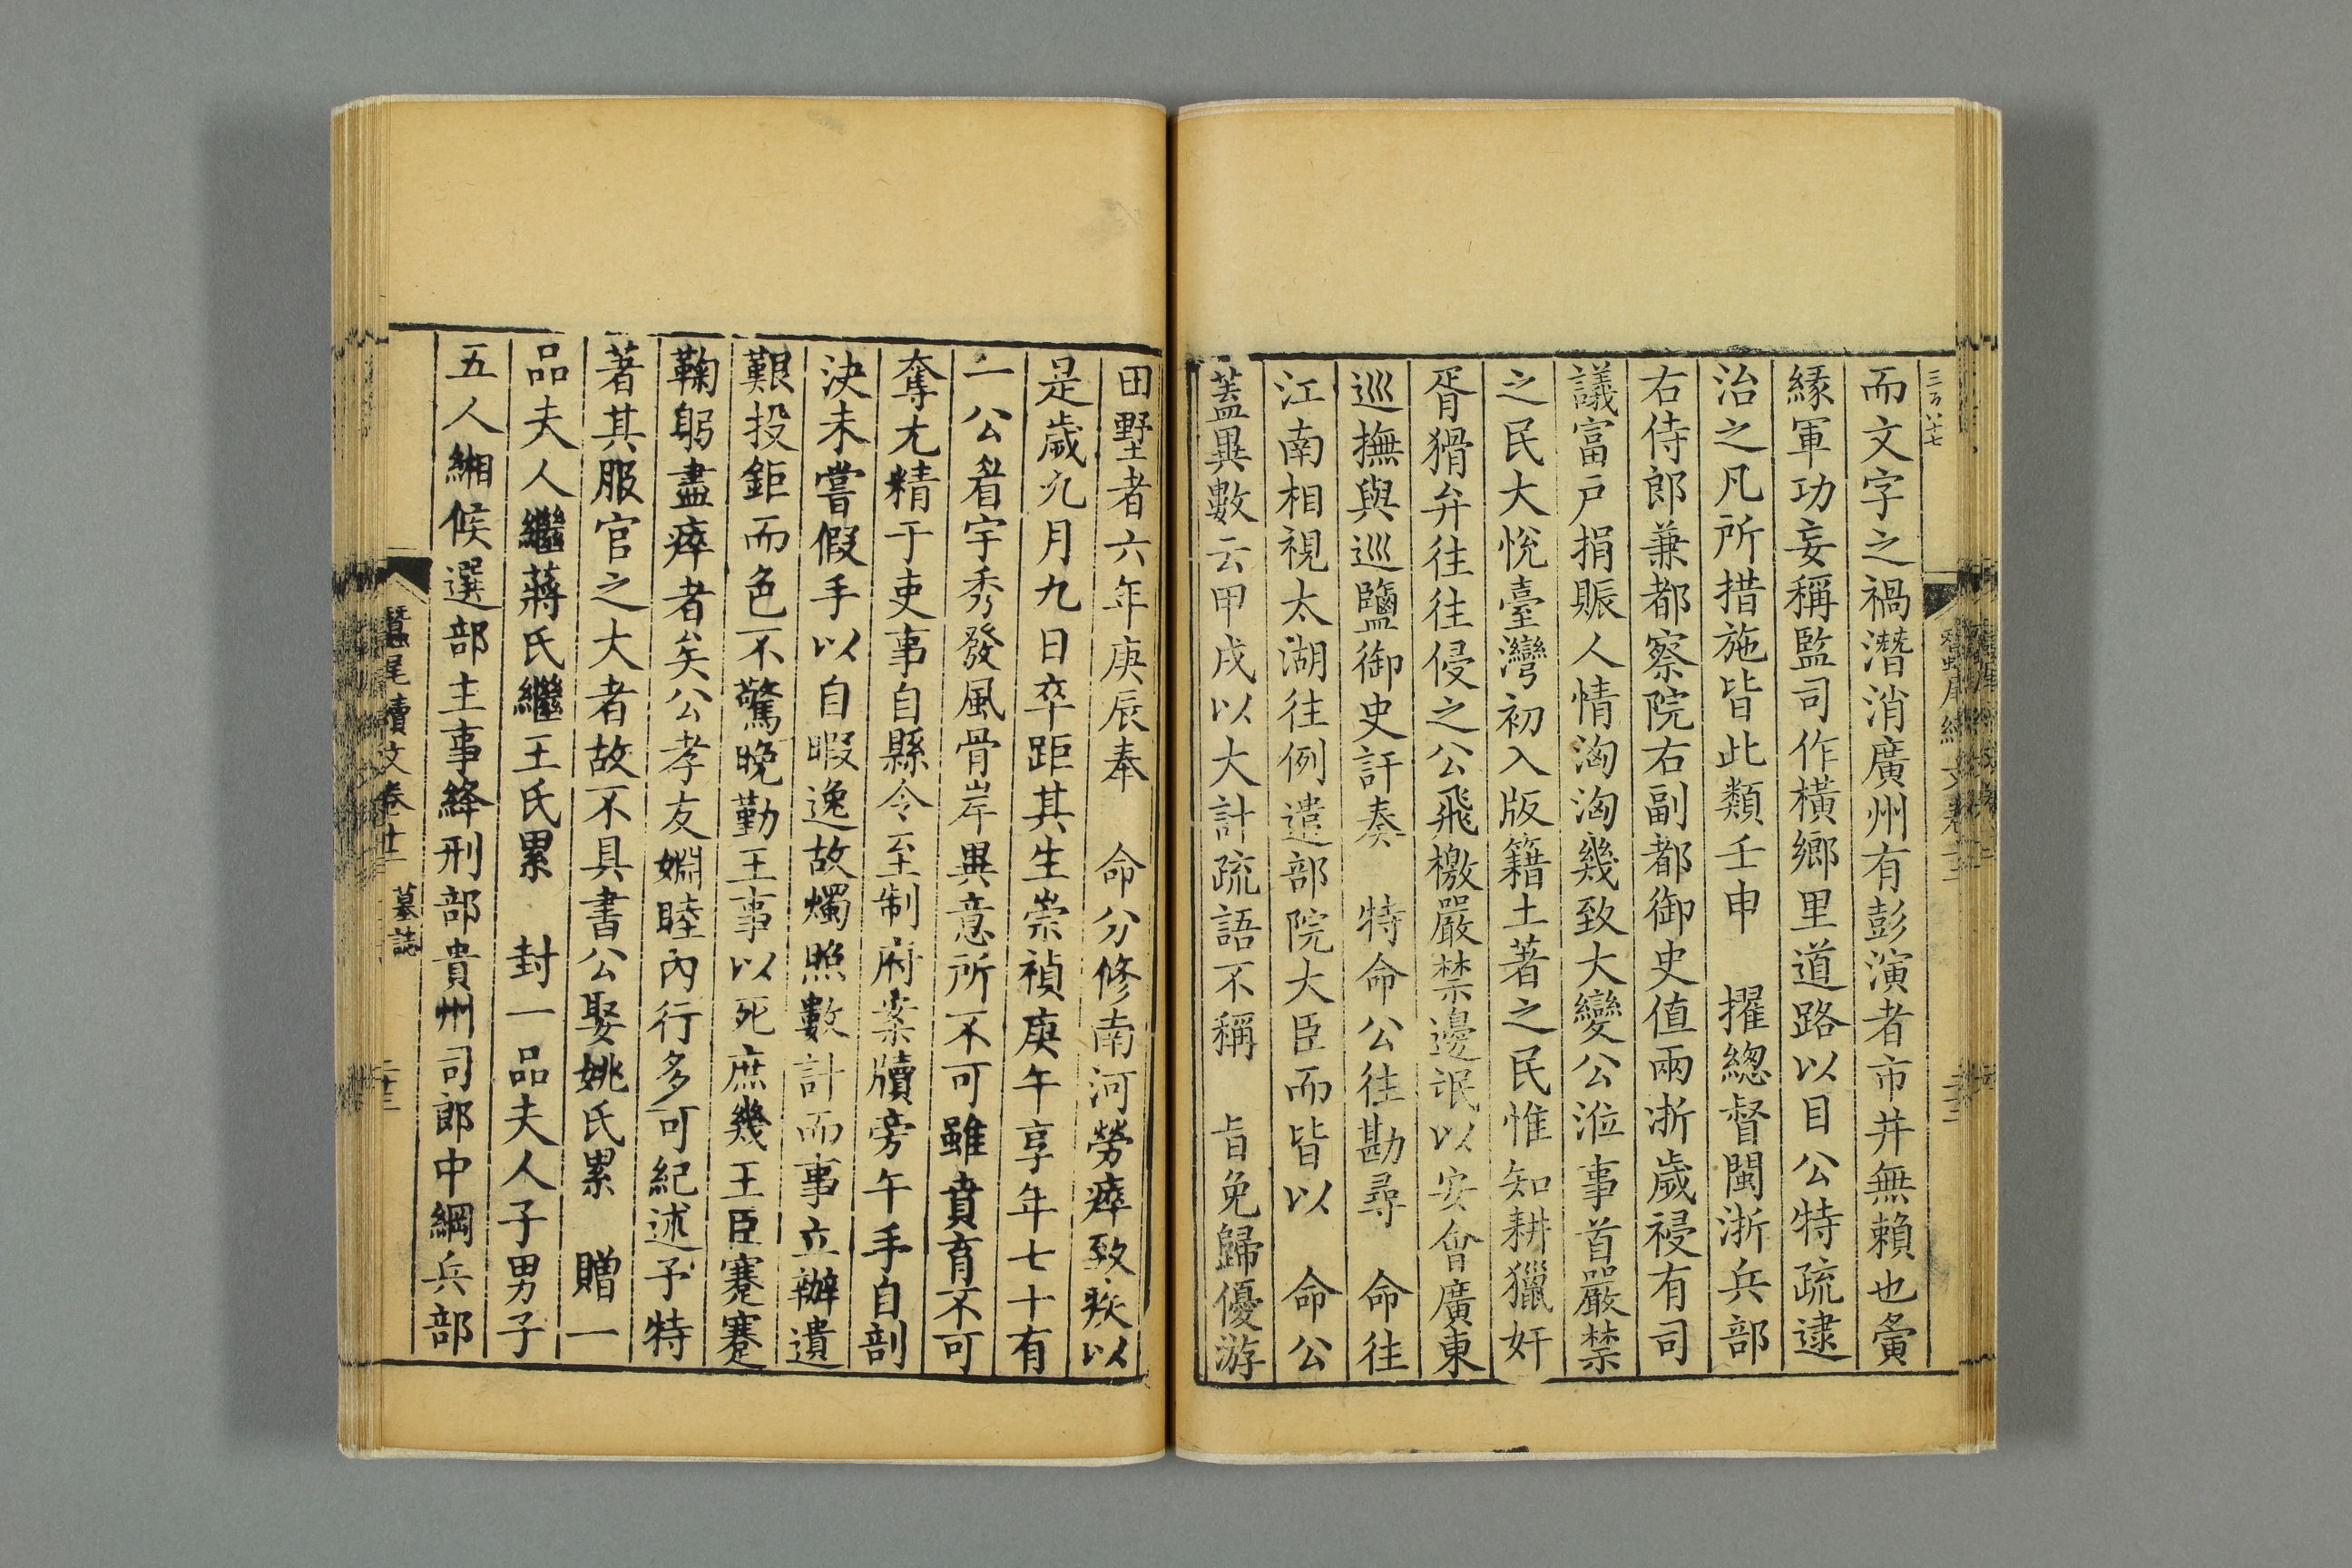 三百八十七
而文字之禍潛消廣州有彭演者市井無賴也夤
緣軍功妄稱監司作橫鄉里道路以目公特疏逮
治之凡所措施皆此類壬申 擢總督閩浙兵部
右侍郎兼都察院右副都御史值兩浙歲祲有司
議富戶捐賑人情洶洶幾致大變公涖事首嚴禁
之民大悅臺灣初入版籍土著之民惟知耕獵奸
胥猾弁往往侵之公飛檄嚴禁邊氓以安會廣東
巡撫與巡鹽御史訐奏 特命公往勘尋 命往
江南相視太湖往例遣部院大臣而皆以 命公
蓋異數云甲戌以大計疏語不稱 旨免歸優游
田野者六年庚辰奉 命分修南河勞瘁致疾以
是歲九月九日卒距其生崇禎庚午享年七十有
一公眉宇秀發風骨岸異意所不可雖賁育不可
奪尤精于吏事自縣令至制府案牘旁午手自剖
決未嘗假手以自暇逸故燭照數計而事立辦遺
艱投鉅而色不驚晚勤王事以死庶幾王臣蹇蹇
鞠躬盡瘁者矣公孝友婣睦內行多可紀述予特
著其服官之大者故不具書公娶姚氏累 贈一
品夫人繼蔣氏繼王氏累 封一品夫人子男子
五人緗候選部主事絳刑部貴州司郎中綱兵部
蠶尾續文卷十二 墓誌 二十三